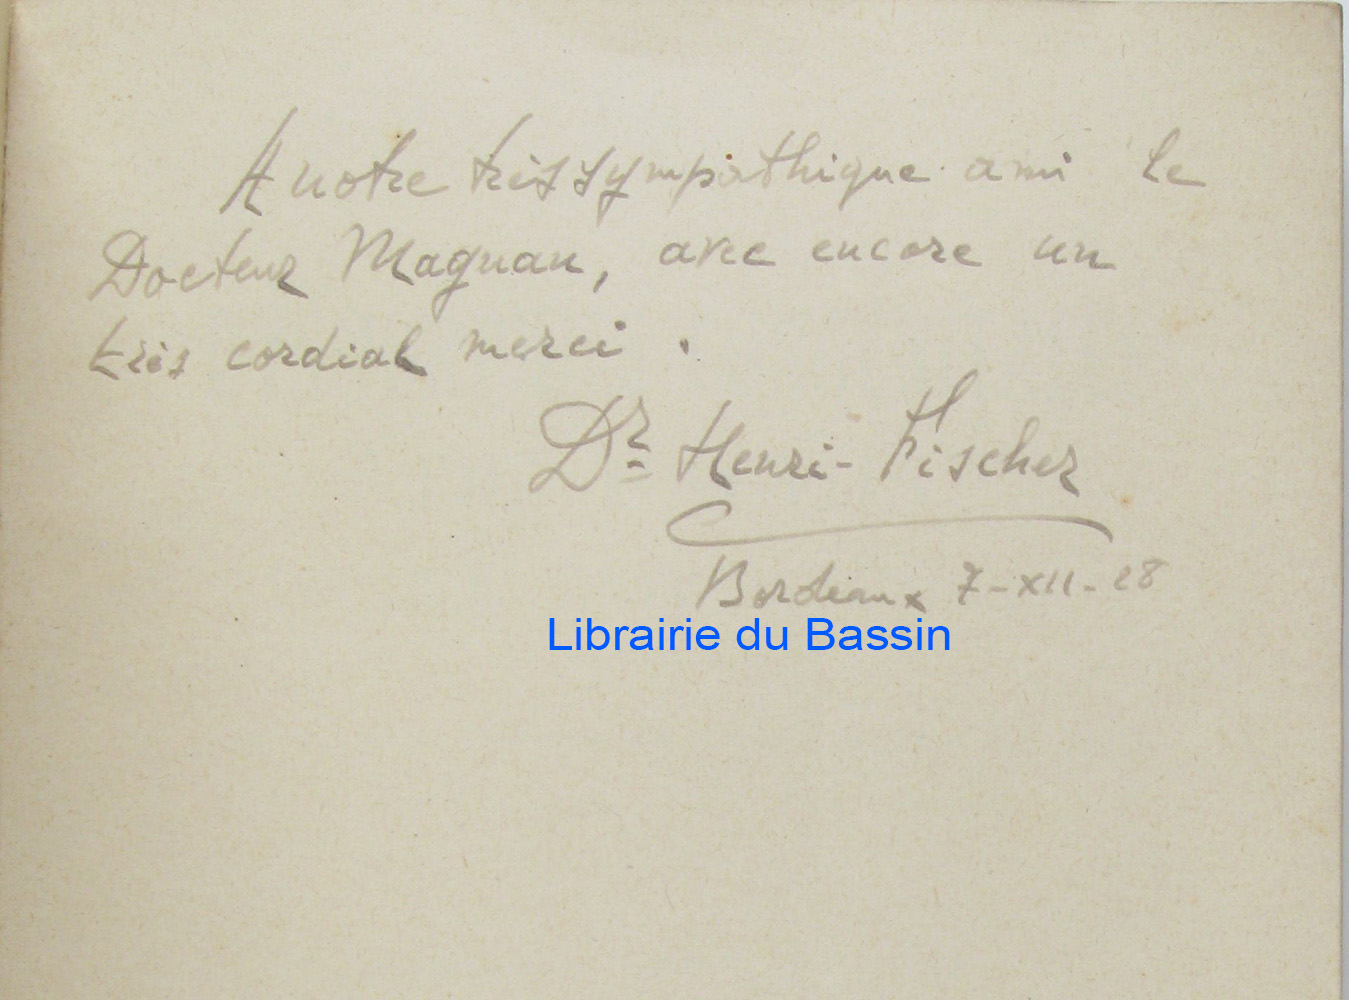 A notre très sympathique ami le
Docteur Magnan, avec encore un
très cordial merci.
Dr Henri-Fischer
Bordeaux 7-XII-28
Librairie du Bassin